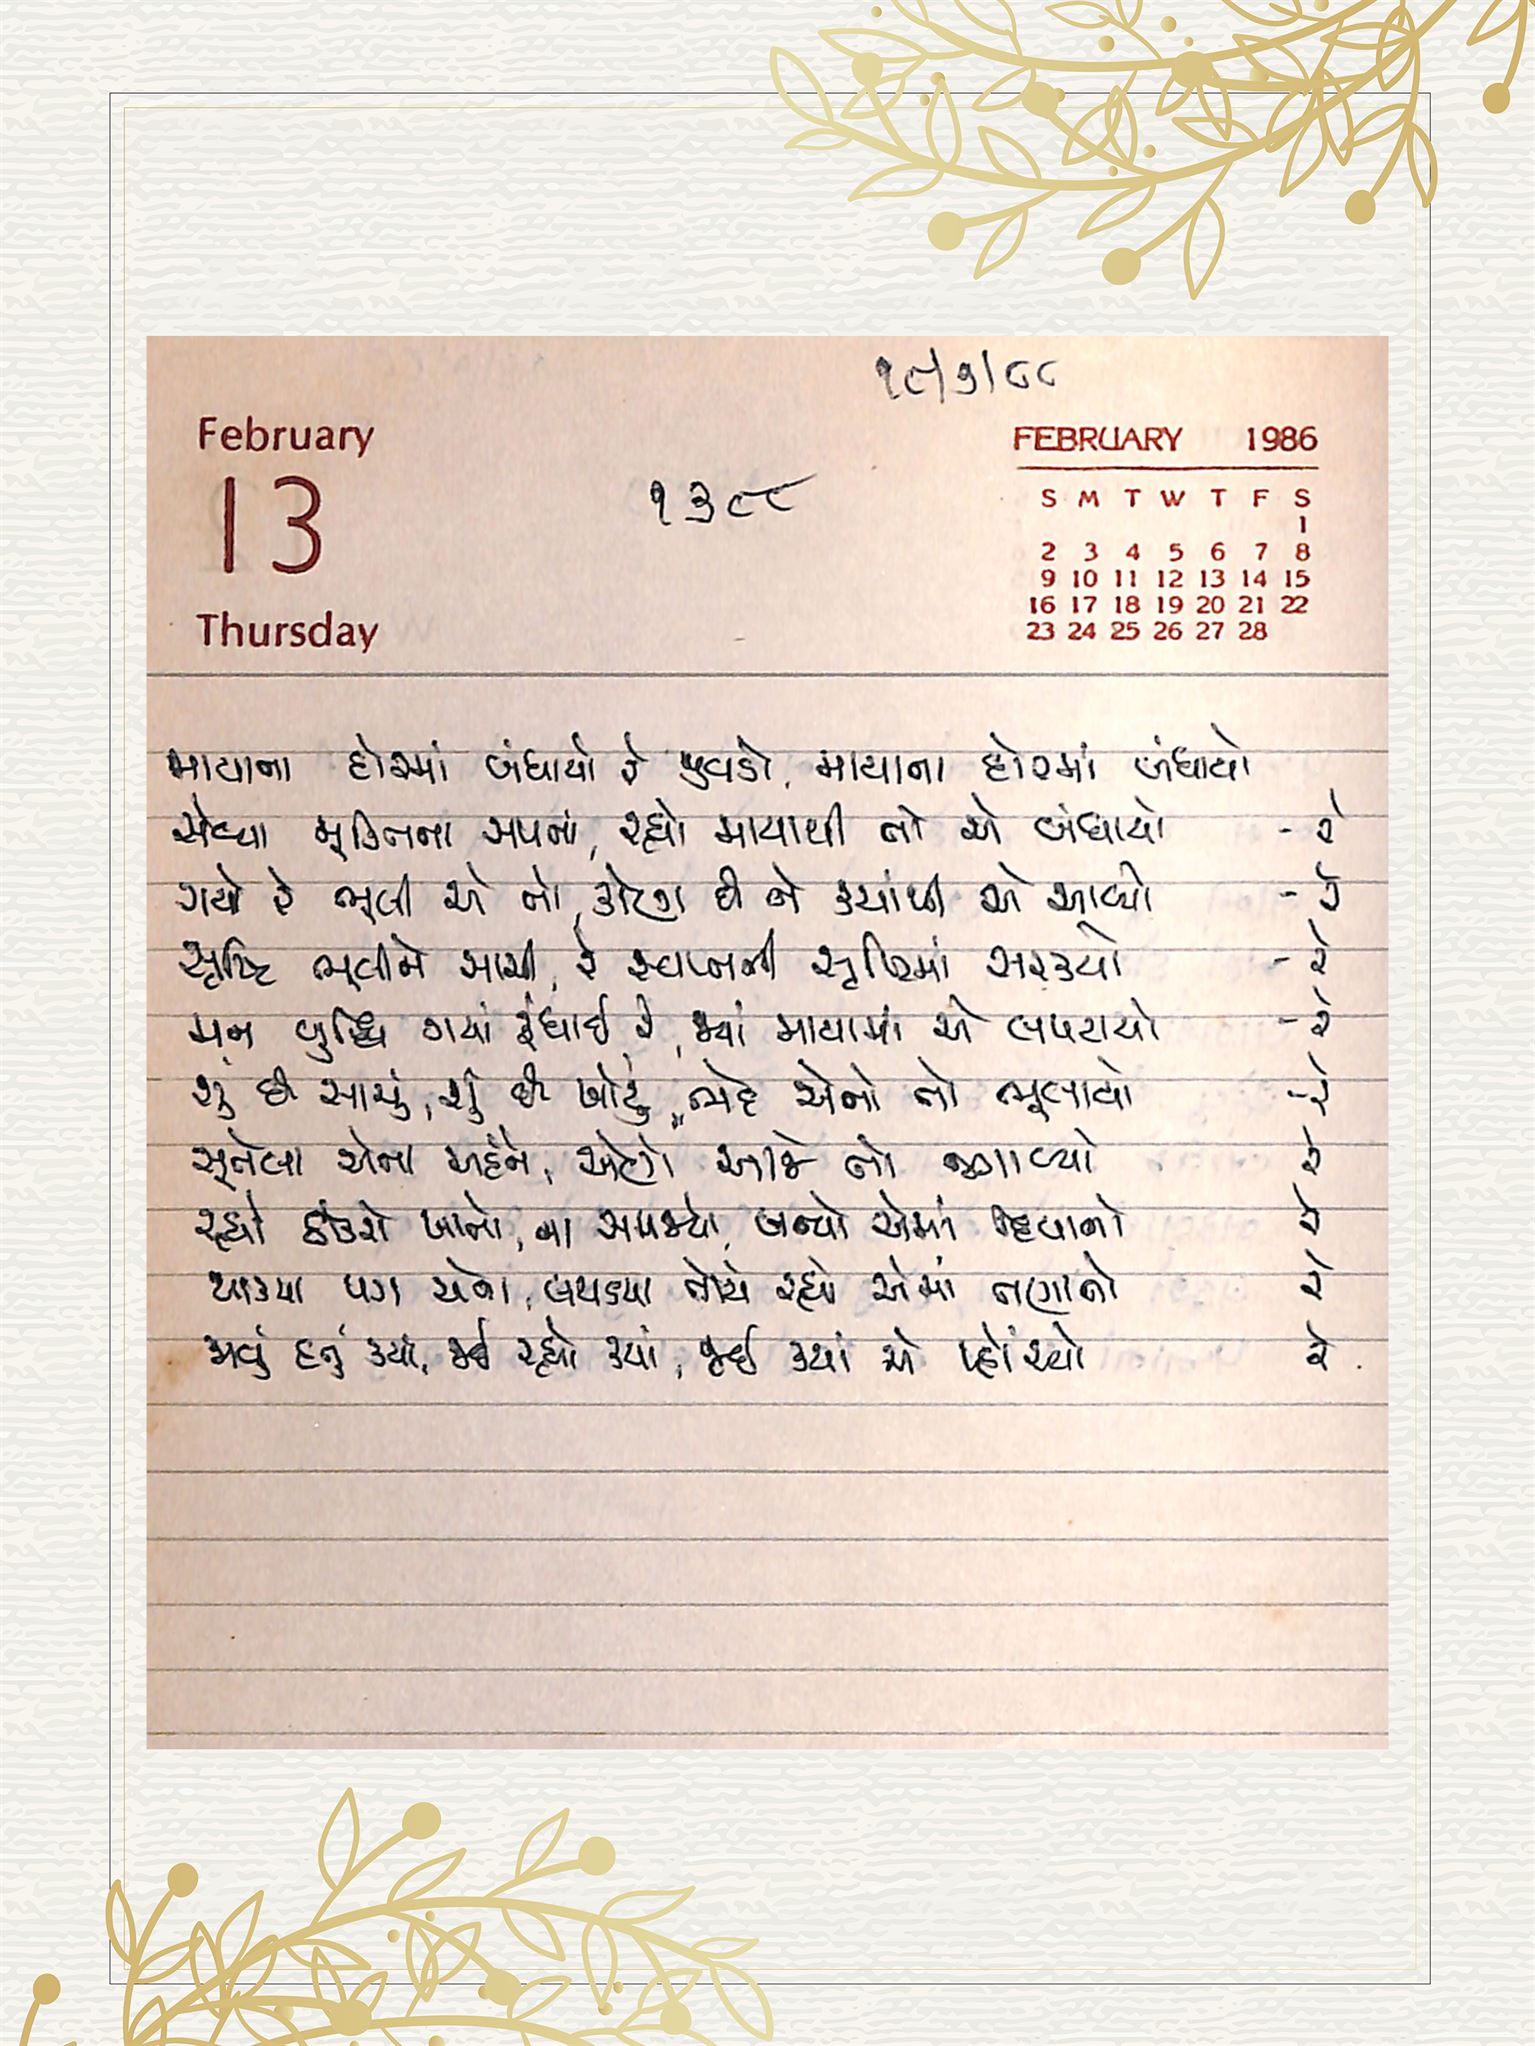 ૧૮/૭/૮૮
February
13
Thursday
૧૩૮૮
FEBRUARY 1986
S M T W T F S
1
2 3 4 5 6 7 8
9 10 11 12 13 14 15
16 17 18 19 20 21 22
23 24 25 26 27 28
માયાના દોરમાં બંધાયો રે પુવડો, માયાના દોરમાં બંધાયો
સેવ્યા મૂક્તિના સપનાં, રહ્યો માયાથી તો એ બંધાયો - રે
ગયો રે ભૂલી એ તો, કોણ છે ને ક્યાંથી એ આવ્યો - રે
સૃષ્ટિ ભૂલીને સાચી, રે સ્વપ્નની સૃષ્ટિમાં સરક્યો - રે
મન બુદ્ધિ ગયાં રૂંધાઈ રે, જ્યાં માયામાં એ લપટાયો - રે
શું છે સાચું, શું છે ખોટું, ભેદ એનો તો ભૂલાયો - રે
સૂતેલા એના અહંને, એણે આજે તો જગાવ્યો રે
રહ્યો ઠોકરો ખાતો, ના સમજ્યો, બન્યો એમાં દિવાનો રે
થાક્યા પગ એના, લથડ્યા તોયે રહ્યો એમાં તણાતો રે
જવું હતું ક્યાં, જઈ રહ્યો ક્યાં, જઈ ક્યાં એ પ્હોંચ્યો રે